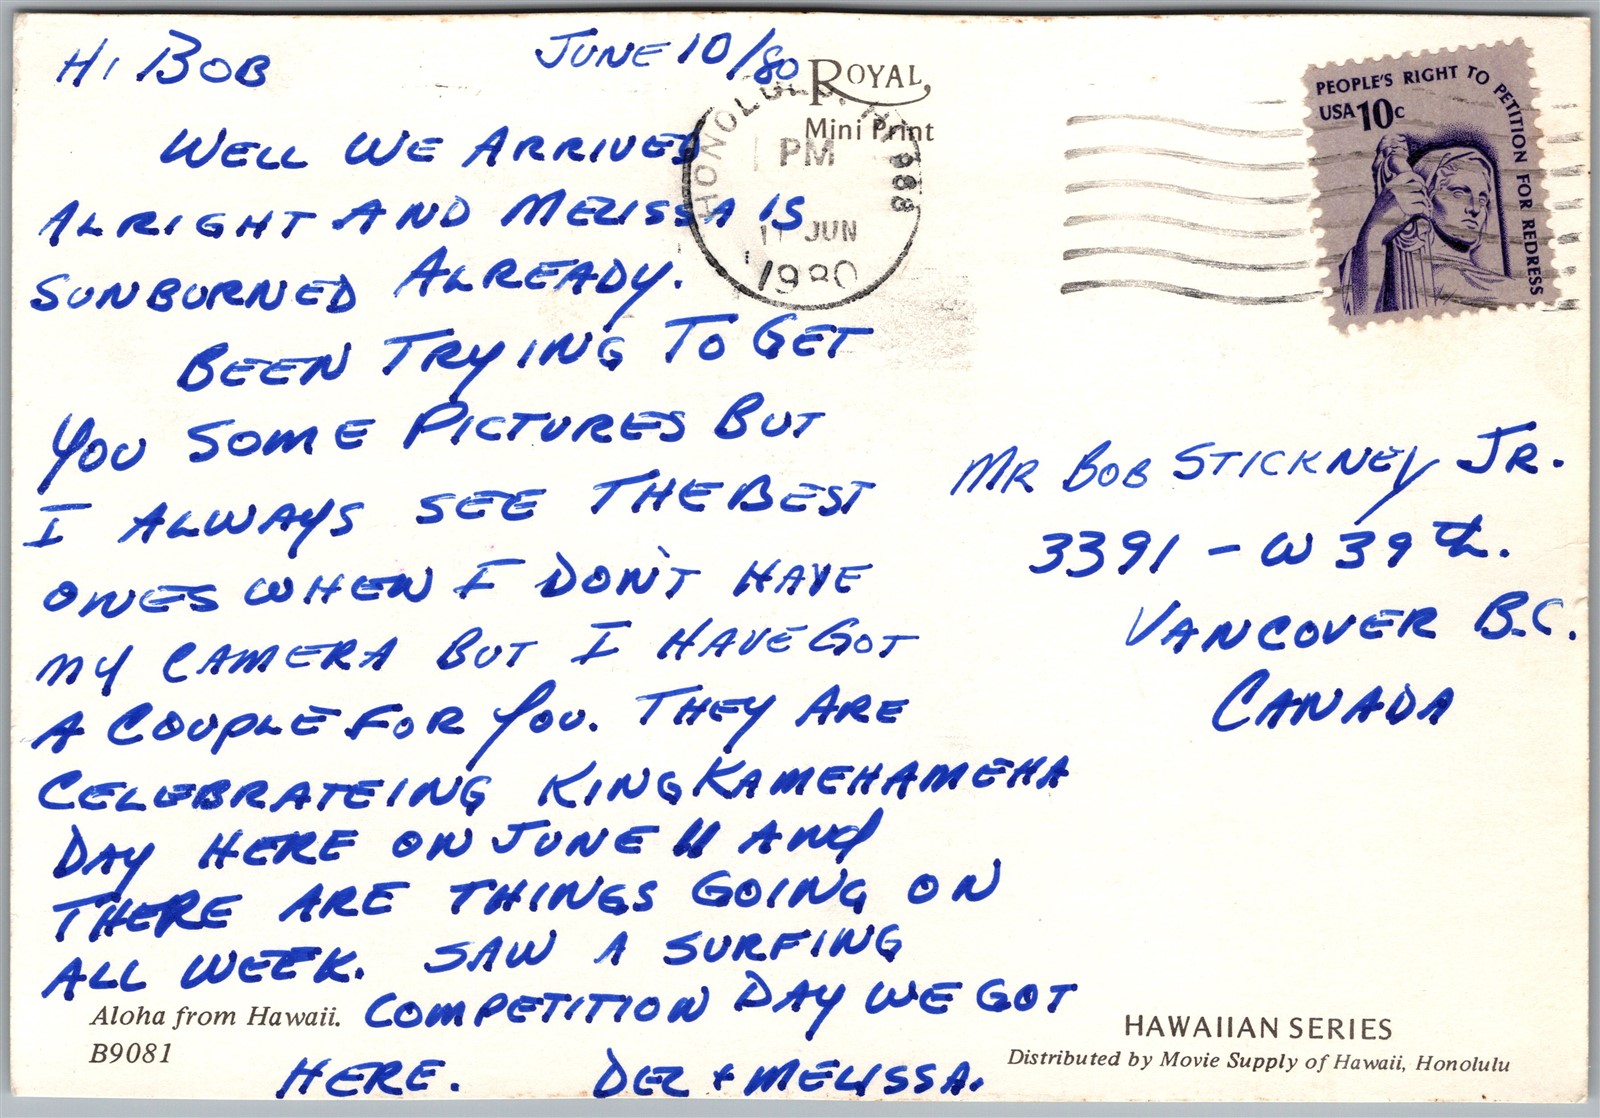 HI BOB JUNE 10/80
WELL WE ARRIVED
ALRIGHT AND MELISSA IS
SUNBURNED ALREADY.
BEEN TRYING TO GET
YOU SOME PICTURES BUT
I ALWAYS SEE THE BEST
ONES WHEN I DON'T HAVE
MY CAMERA BUT I HAVE GOT
A COUPLE FOR YOU. THEY ARE
CELEBRATEING KING KAMEHAMEHA
DAY HERE ON JUNE 11 AND
THERE ARE THINGS GOING ON
ALL WEEK. SAW A SURFING
COMPETITION DAY WE GOT
HERE. DEL + MELISSA.
Aloha from Hawaii.
B9081
ROYAL
Mini Print
HONOLULU, HI 968
PM
11 JUN
1980
PEOPLE'S RIGHT TO PETITION FOR REDRESS
USA 10c
MR BOB STICKNEY JR.
3391 - W 39th.
VANCOVER B.C.
CANADA
HAWAIIAN SERIES
Distributed by Movie Supply of Hawaii, Honolulu